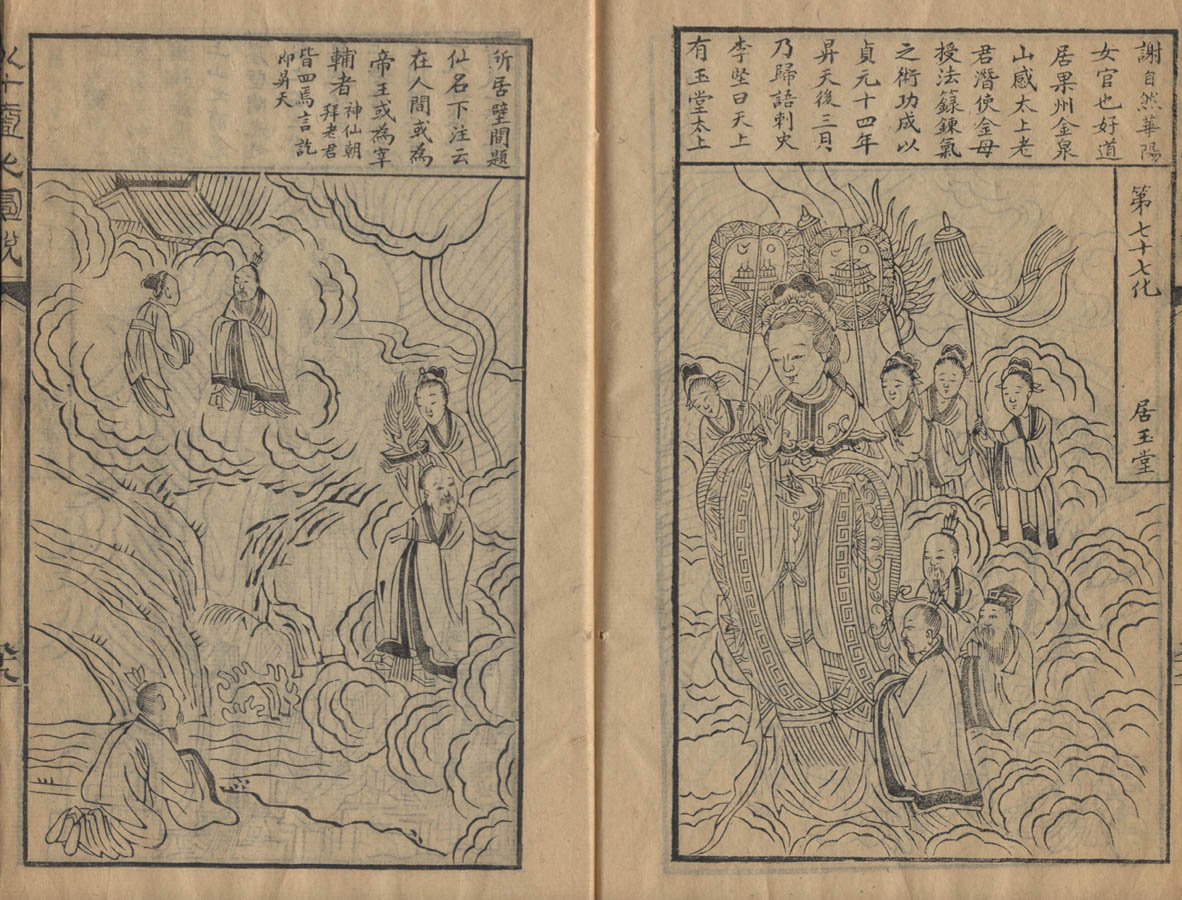 謝自然華陽
女官也好道
居果州金泉
山感太上老
君潛使金母
授法籙鍊氣
之術功成以
貞元十四年
昇天後三月
乃歸語刺史
李堅曰天上
有玉堂太上
第七十七化
居玉堂
所居壁間題
仙名下注云
在人間或為
帝王或為宰
輔者神仙朝
拜老君
皆四焉言訖
即昇天
化圖說